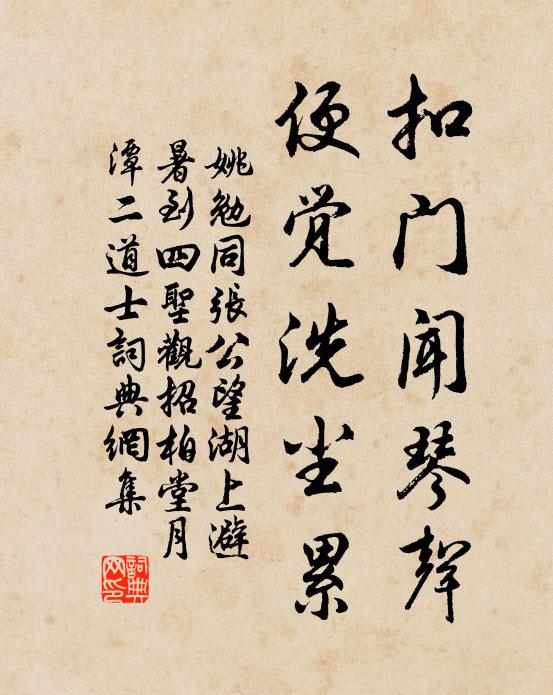 扣门闻琴聲
便觉洗尘累
姚勉同張公望湖上避
暑到四聖觀招柏堂月
潭二道士詞典網集
詞典
网印